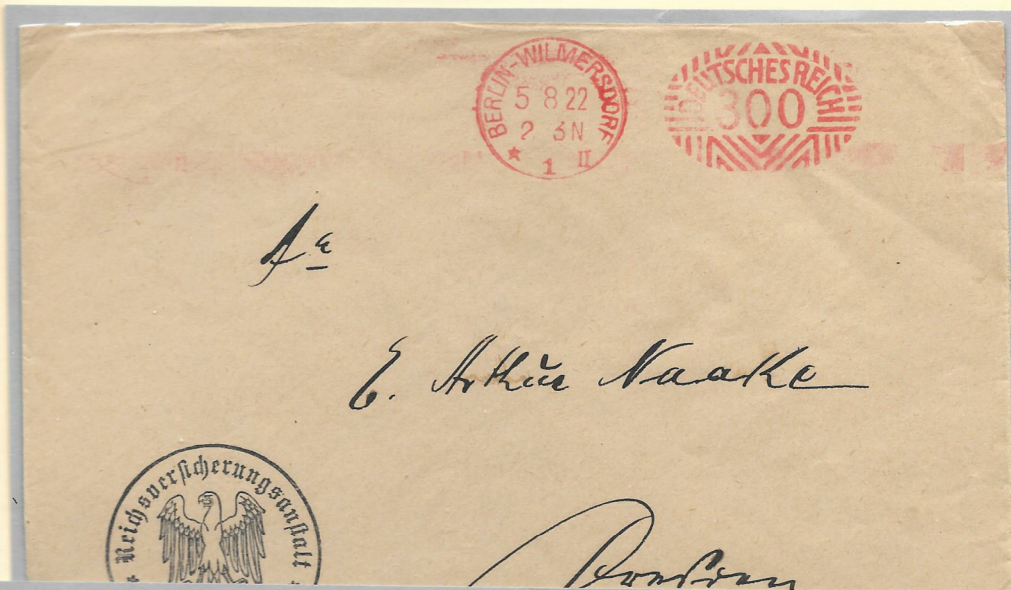 BERLIN-WILMERSDORF
5 8 22
2 3N
* 1 II
DEUTSCHES REICH
300
An
E. Arthur Naake
Reichsversicherungsanstalt
Dresden